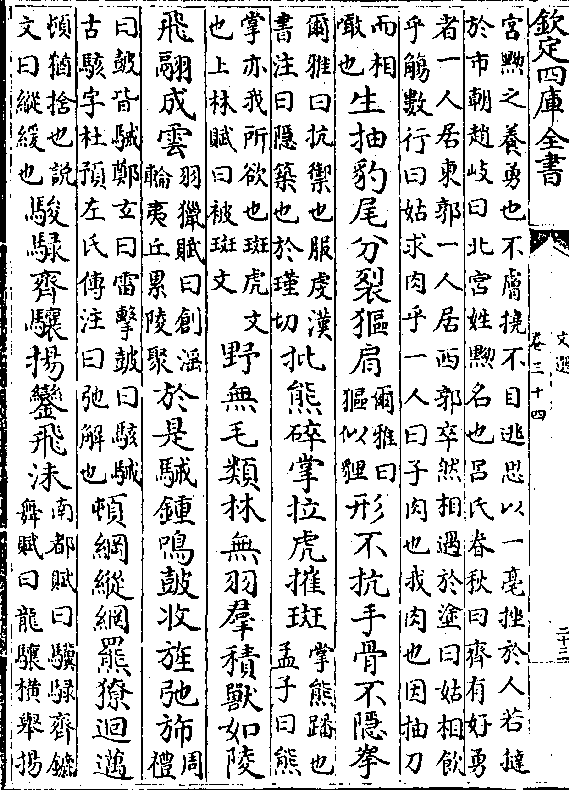 欽定四庫全書
文選
卷三十四
二十三
宮黝之養勇也不膚撓不目逃思以一毫挫於人若撻
於市朝趙岐曰北宮姓黝名也呂氏春秋曰齊有好勇
者一人居東郭一人居西郭卒然相遇於塗曰姑相飲
乎觴數行曰姑求肉乎一人曰子肉也我肉也因抽刀
而相
噉也
生抽豹尾分裂貙肩
爾雅曰
貙似貍
形不抗手骨不隱拳
爾雅曰抗禦也服虔漢
書注曰隠築也於瑾切
批熊碎掌拉虎摧斑
掌熊蹯也
孟子曰熊
掌亦我所欲也斑虎文
也上林賦曰被斑文
野無毛類林無羽羣積獸如陵
飛翮成雲
羽獵賦曰創淫
輪夷丘累陵聚
於是駴鍾鳴鼓收旌弛旆
周
禮
曰鼓皆駴鄭玄曰雷擊鼓曰駭駴
古駭字杜預左氏傳注曰弛解也
頓綱縱網羆獠迴邁
頓猶捨也說
文曰縱緩也
駿騄齊驤揚鑾飛沫
南都賦曰騏騄齊鑣
舞賦曰龍驤橫舉揚